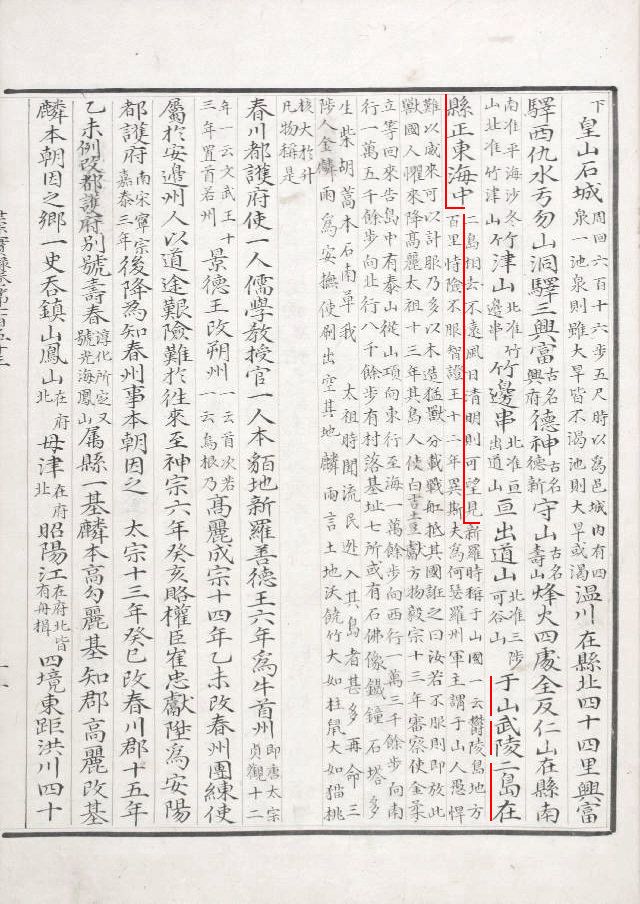 下 皇山石城周回六百十六步五尺時以爲邑城内有四泉一池泉則雖大旱皆不渴池則大旱或渴温川在縣北四十四里興富
驛西仇水亐勿山洞驛三興富古名興府德神古名德新守山古名壽山烽火四處全反仁山在縣南
南准平海沙冬山北准竹津山竹津山北准竹邊串竹邊串北准亘出道山亘出道山北准三陟可谷山于山武陵二島在
縣正東海中二島相去不遠風日清明則可望見新羅時稱于山國一云鬱陵島地方百里恃險不服智證王十二年異斯夫爲何瑟羅州軍主謂于山人愚悍
難以威來可以計服乃多以木造猛獸分載戰舡抵其國誑之曰汝若不服則即放此
獸國人懼來降高麗太祖十三年其島人使白吉土豆獻方物毅宗十三年審察使金柔
立等回來告島中有泰山從山頂向東行至海一萬餘步向西行一萬三千餘步向南
行一萬五千餘步向北行八千餘步有村落基址七所或有石佛像鐵鐘石塔多
生柴胡蒿本石南草我 太祖時聞流民逃入其島者甚多再命三
陟人金麟雨爲安撫使刷出空其地麟雨言土地沃饒竹大如柱鼠大如猫桃
核大於升
凡物稱是
春川都護府使一人儒學教授官一人本貊地新羅善德王六年爲牛首州即唐太宗貞觀十二
年一云文武王十三年置首若州景德王改朔州一云首次若一云烏根乃高麗成宗十四年乙未改春州團練使
屬於安邉州人以道途艱險難於徃來至神宗六年癸亥賂權臣崔忠獻陞爲安陽
都護府南宋寧宗嘉泰三年後降爲知春州事本朝因之 太宗十三年癸巳改春川郡十五年
乙未例改都護府別號壽春淳化所定又號光海鳳山屬縣一基麟本高勾麗基知郡高麗改基
麟本朝因之鄕一史吞鎮山鳳山在府北母津在府北昭陽江在府北皆有舟楫四境東距洪川四十